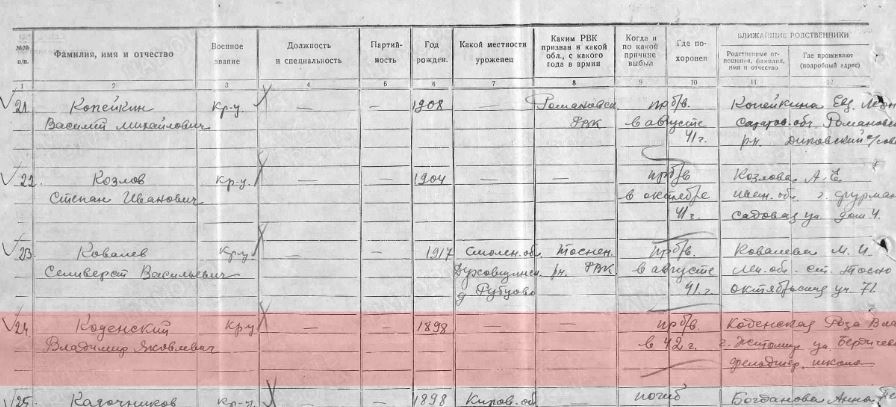 №№ п/п. Фамилия, имя и отчество Военное звание Должность и специальность Партийность Год рожден. Какой местности уроженец Каким РВК призван и какой обл., с какого года в армии Когда и по какой причине выбыл Где похоронен БЛИЖАЙШИЕ РОДСТВЕННИКИ
Родственные отношения, фамилия, имя и отчество Где проживают (подробный адрес)
1 2 3 4 5 6 7 8 9 10 11 12
21 Копейкин Кр-ц. — — 1908 — Романовск. пр/б/в. Копейкина Евд.
Василий Михайлович РВК в августе саратов. обл. Романовск
41 г. р-н.
22. Козлов Кр-ц. — — 1904 — — пр/б/в Козлова А. Е.
Степан Иванович в октябре ивен. обл. г. фурман
41 г. садовая ул дом 4.
23 Ковалев Кр-ц — — 1917 Смолен. об. Тоснен. пр/б/в. Ковалева М. И.
Селиверст Васильевич Духовщинск. рн. РВК в августе Лен. об. ст. Тосно
д Рубцово 41 г. октябрьская ул. 71.
24 Коденский Кр-ц — — 1898 — — пр/б/в Коденская Роза Вла
Владимир Яковлевич в 42 г. г. Житомир ул Бердичев
фельдшер. школа
25. Казочников Кр-ц. — — 1898 Киров. об — погиб Богданова Анна